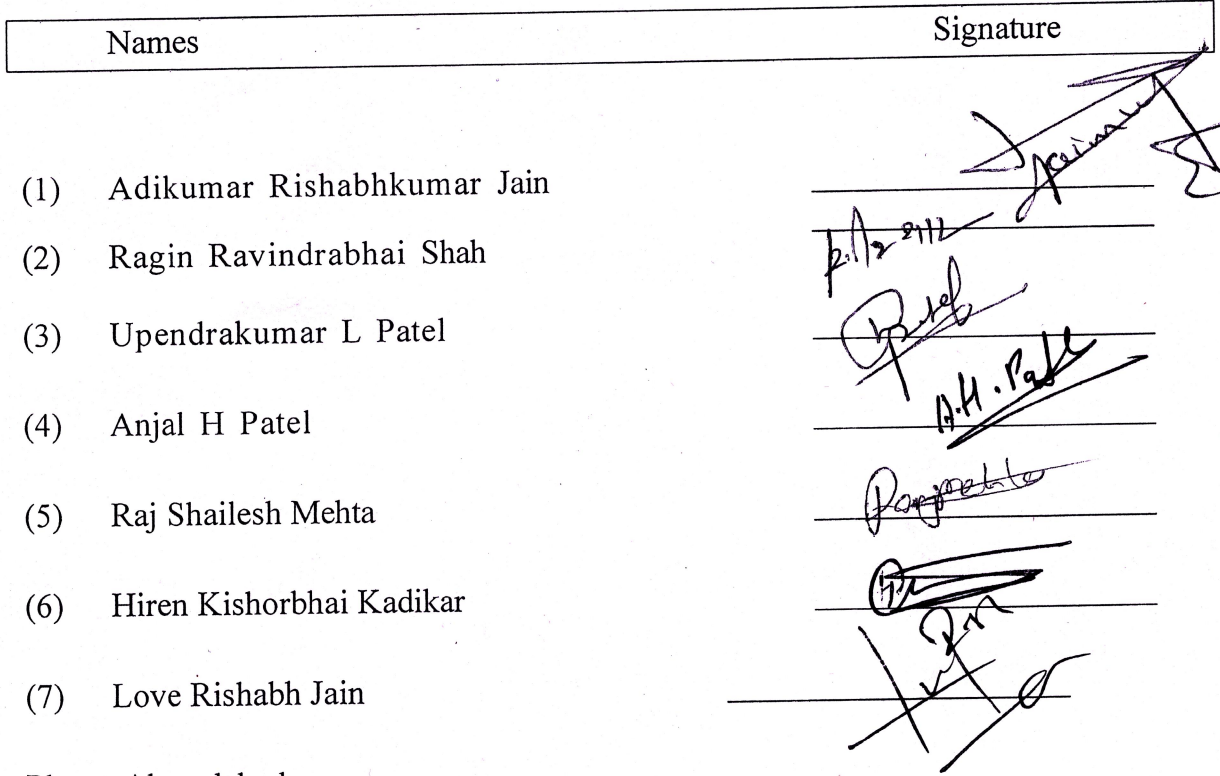 Names Signature
(1) Adikumar Rishabhkumar Jain
(2) Ragin Ravindrabhai Shah
(3) Upendrakumar L Patel
(4) Anjal H Patel A.H. Patel
(5) Raj Shailesh Mehta
(6) Hiren Kishorbhai Kadikar
(7) Love Rishabh Jain